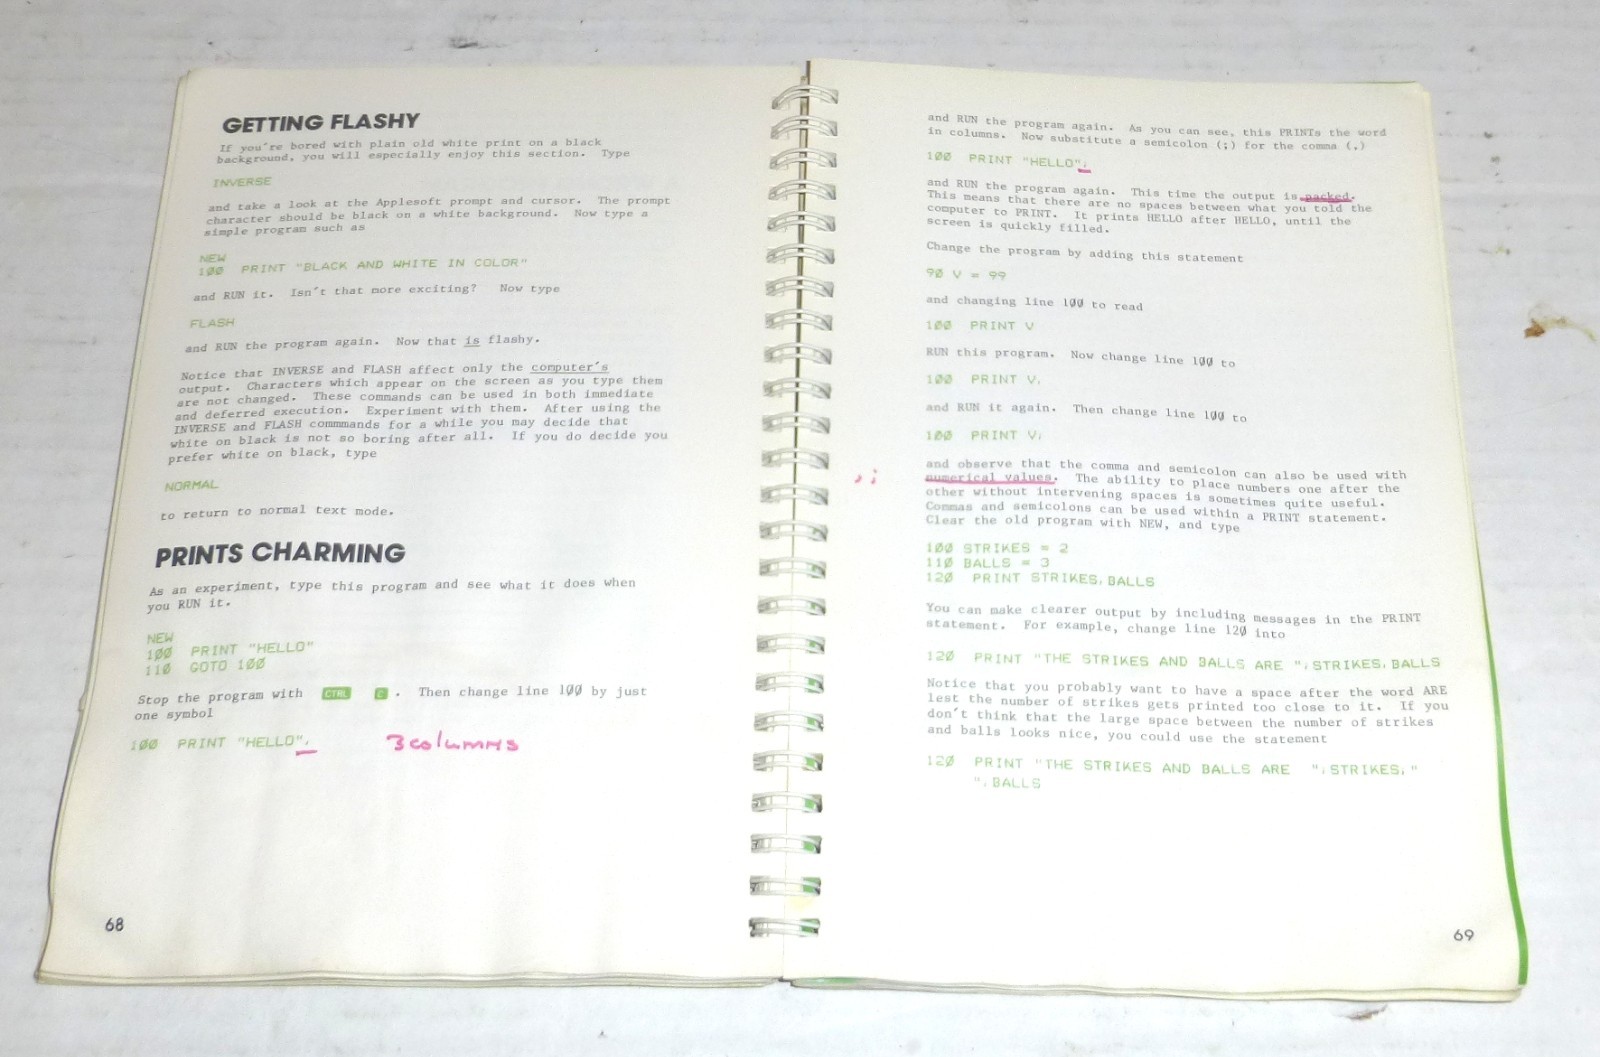 GETTING FLASHY
If you're bored with plain old white print on a black
background, you will especially enjoy this section. Type
INVERSE
and take a look at the Applesoft prompt and cursor. The prompt
character should be black on a white background. Now type a
simple program such as
NEW
100 PRINT "BLACK AND WHITE IN COLOR"
and RUN it. Isn't that more exciting? Now type
FLASH
and RUN the program again. Now that is flashy.
Notice that INVERSE and FLASH affect only the computer's
output. Characters which appear on the screen as you type them
are not changed. These commands can be used in both immediate
and deferred execution. Experiment with them. After using the
INVERSE and FLASH commmands for a while you may decide that
white on black is not so boring after all. If you do decide you
prefer white on black, type
NORMAL
to return to normal text mode.
PRINTS CHARMING
As an experiment, type this program and see what it does when
you RUN it.
NEW
100 PRINT "HELLO"
110 GOTO 100
Stop the program with CTRL C . Then change line 100 by just
one symbol
100 PRINT "HELLO", 3 columns
68
and RUN the program again. As you can see, this PRINTs the word
in columns. Now substitute a semicolon (;) for the comma (,)
100 PRINT "HELLO";
and RUN the program again. This time the output is packed.
This means that there are no spaces between what you told the
computer to PRINT. It prints HELLO after HELLO, until the
screen is quickly filled.
Change the program by adding this statement
90 V = 99
and changing line 100 to read
100 PRINT V
RUN this program. Now change line 100 to
100 PRINT V,
and RUN it again. Then change line 100 to
100 PRINT V;
, ;
and observe that the comma and semicolon can also be used with
numerical values. The ability to place numbers one after the
other without intervening spaces is sometimes quite useful.
Commas and semicolons can be used within a PRINT statement.
Clear the old program with NEW, and type
100 STRIKES = 2
110 BALLS = 3
120 PRINT STRIKES, BALLS
You can make clearer output by including messages in the PRINT
statement. For example, change line 120 into
120 PRINT "THE STRIKES AND BALLS ARE "; STRIKES, BALLS
Notice that you probably want to have a space after the word ARE
lest the number of strikes gets printed too close to it. If you
don't think that the large space between the number of strikes
and balls looks nice, you could use the statement
120 PRINT "THE STRIKES AND BALLS ARE "; STRIKES; "
"; BALLS
69